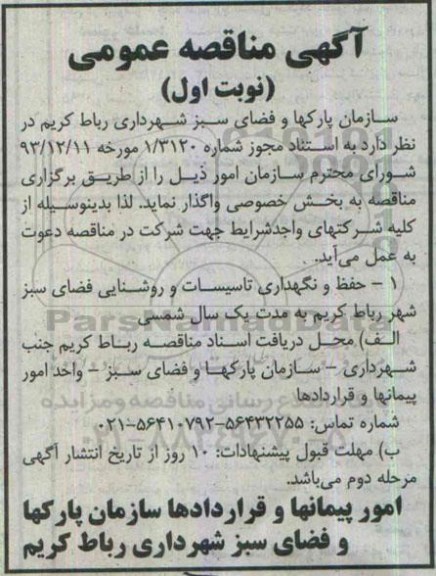 آگهی مناقصه عمومی
(نوبت اول)
سازمان پارکها و فضای سبز شهرداری رباط کریم در
نظر دارد به استناد مجوز شماره ۱/۳۱۲۰ مورخه ۹۳/۱۲/۱۱
شورای محترم سازمان امور ذیل را از طریق برگزاری
مناقصه به بخش خصوصی واگذار نماید. لذا بدینوسیله از
کلیه شرکتهای واجدشرایط جهت شرکت در مناقصه دعوت
به عمل می‌آید.
۱ - حفظ و نگهداری تاسیسات و روشنایی فضای سبز
شهر رباط کریم به مدت یک سال شمسی
الف) محل دریافت اسناد مناقصه رباط کریم جنب
شهرداری - سازمان پارکها و فضای سبز - واحد امور
پیمانها و قراردادها
شماره تماس: ۵۶۴۳۲۲۵۵-۵۶۴۱۰۷۹۲-۰۲۱
ب) مهلت قبول پیشنهادات: ۱۰ روز از تاریخ انتشار آگهی
مرحله دوم می‌باشد.
امور پیمانها و قراردادها سازمان پارکها
و فضای سبز شهرداری رباط کریم
ParsNamadData